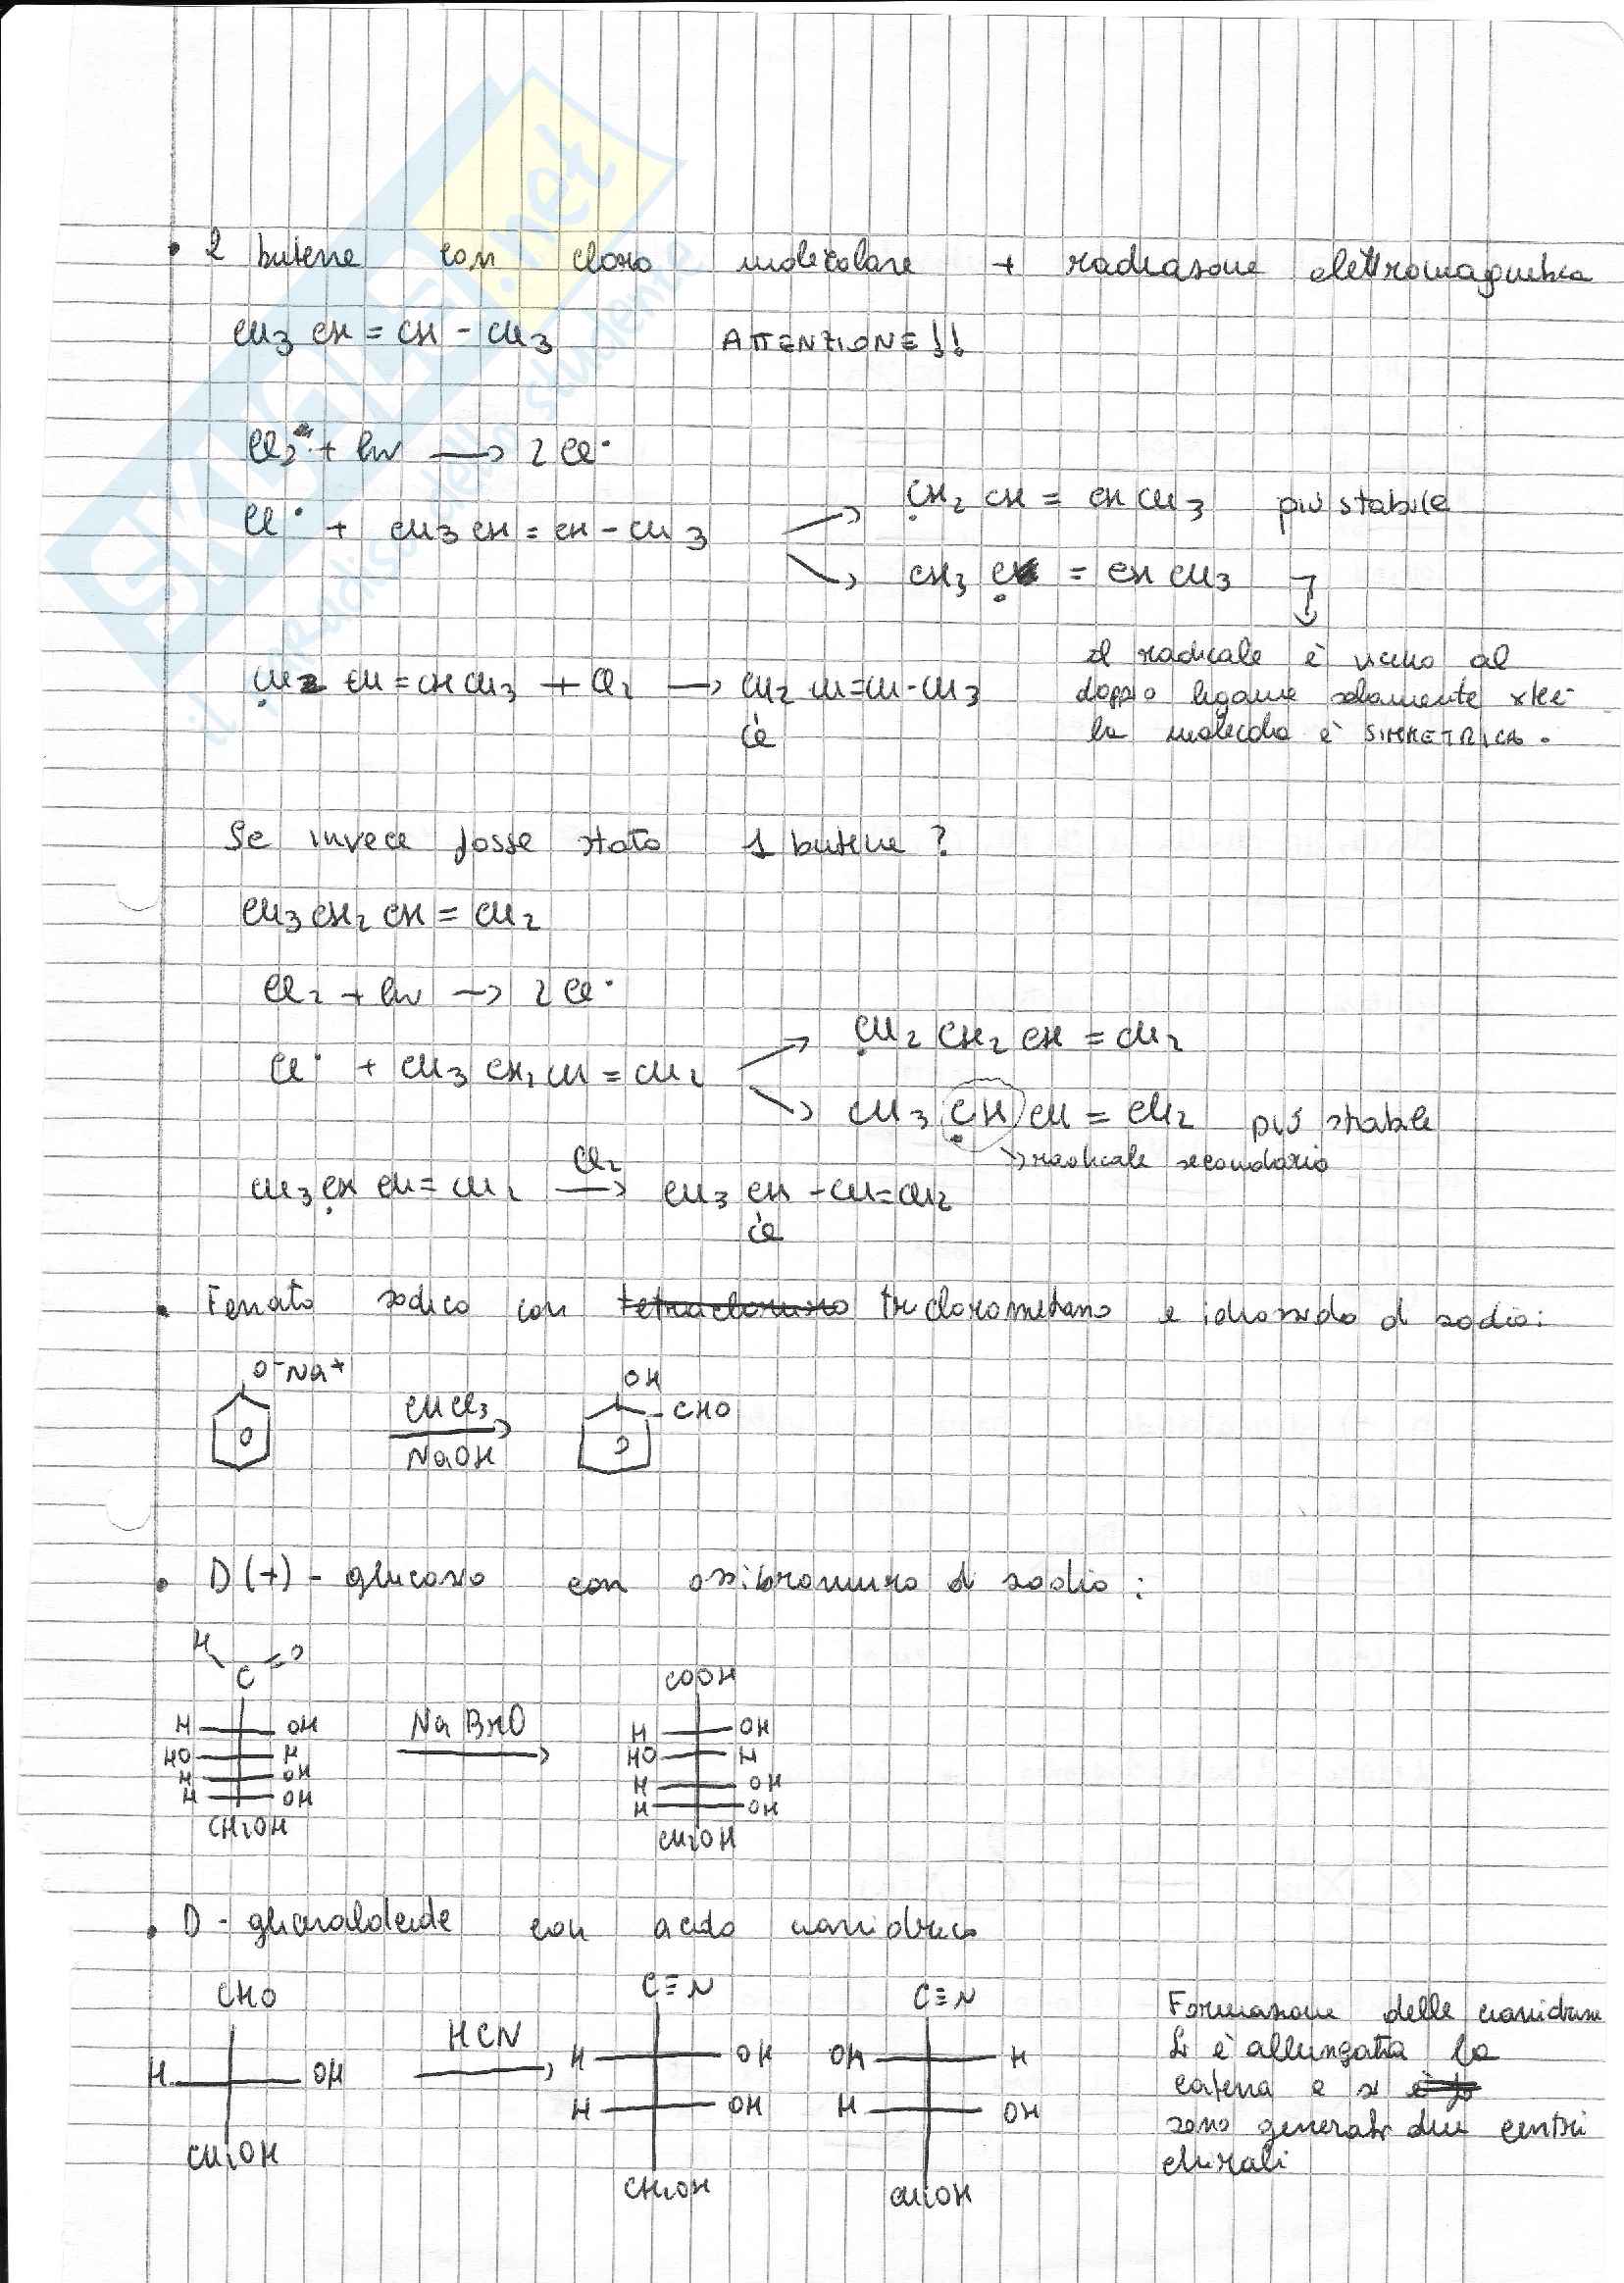 • 2 butene con cloro molecolare + radiazione elettromagnetica
CH3 CH = CH - CH3 ATTENZIONE!!
Cl2 + hν → 2 Cl•
Cl• + CH3 CH = CH - CH3
ĊH2 CH = CH CH3 più stabile
CH3 Ċ = CH CH3
il radicale è vicino al
doppio legame solamente xkè
la molecola è SIMMETRICA.
ĊH2 CH = CH CH3 + Cl2 → CH2 CH=CH-CH3
Cl
Se invece fosse stato 1 butene?
CH3 CH2 CH = CH2
Cl2 + hν → 2 Cl•
Cl• + CH3 CH2 CH = CH2
ĊH2 CH2 CH = CH2
CH3 ĊH CH = CH2 più stabile
→ radicale secondario
CH3 ĊH CH = CH2 Cl2 → CH3 CH - CH=CH2
Cl
• Fenato sodico con tetracloruro triclorometano e idrossido d sodio:
O-Na+ OH
CHCl3 → CHO
NaOH
• D(+) - glucosio con ossibromuro d sodio:
H C = O COOH
H OH NaBrO → H OH
HO H HO H
H OH H OH
H OH H OH
CH2OH CH2OH
• D - gliceraldeide con acido cianidrico
CHO C≡N C≡N
HCN →
H OH H OH OH H
H OH H OH
CH2OH CH2OH CH2OH
Formazione delle cianidrine
Si è allungata la
catena e si è
sono generati due centri
chirali
SKUOLA.net
il paradiso dello studente